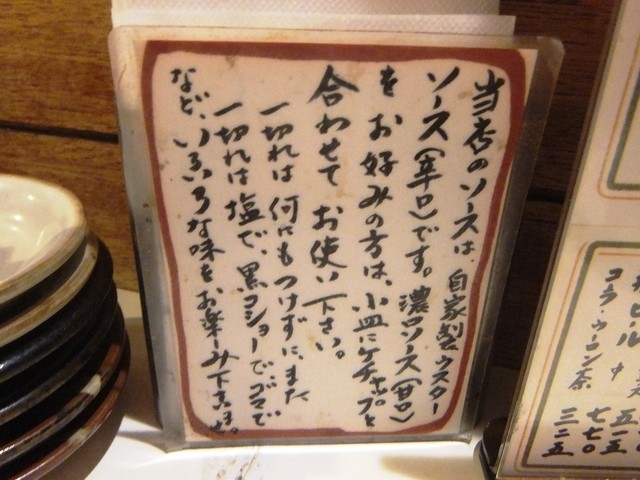 当店のソースは、自家製ウスター
ソース(辛口)です。濃口ソース(甘口)
をお好みの方は、小皿にケチャップと
合わせてお使い下さい。
一切れは何にもつけずに、また
一切れは塩で、黒コショーで、ゴマで
など、いろいろな味をお楽しみ下さいませ。
ビール 中 五一五
コーラ・ウーロン茶 三二五